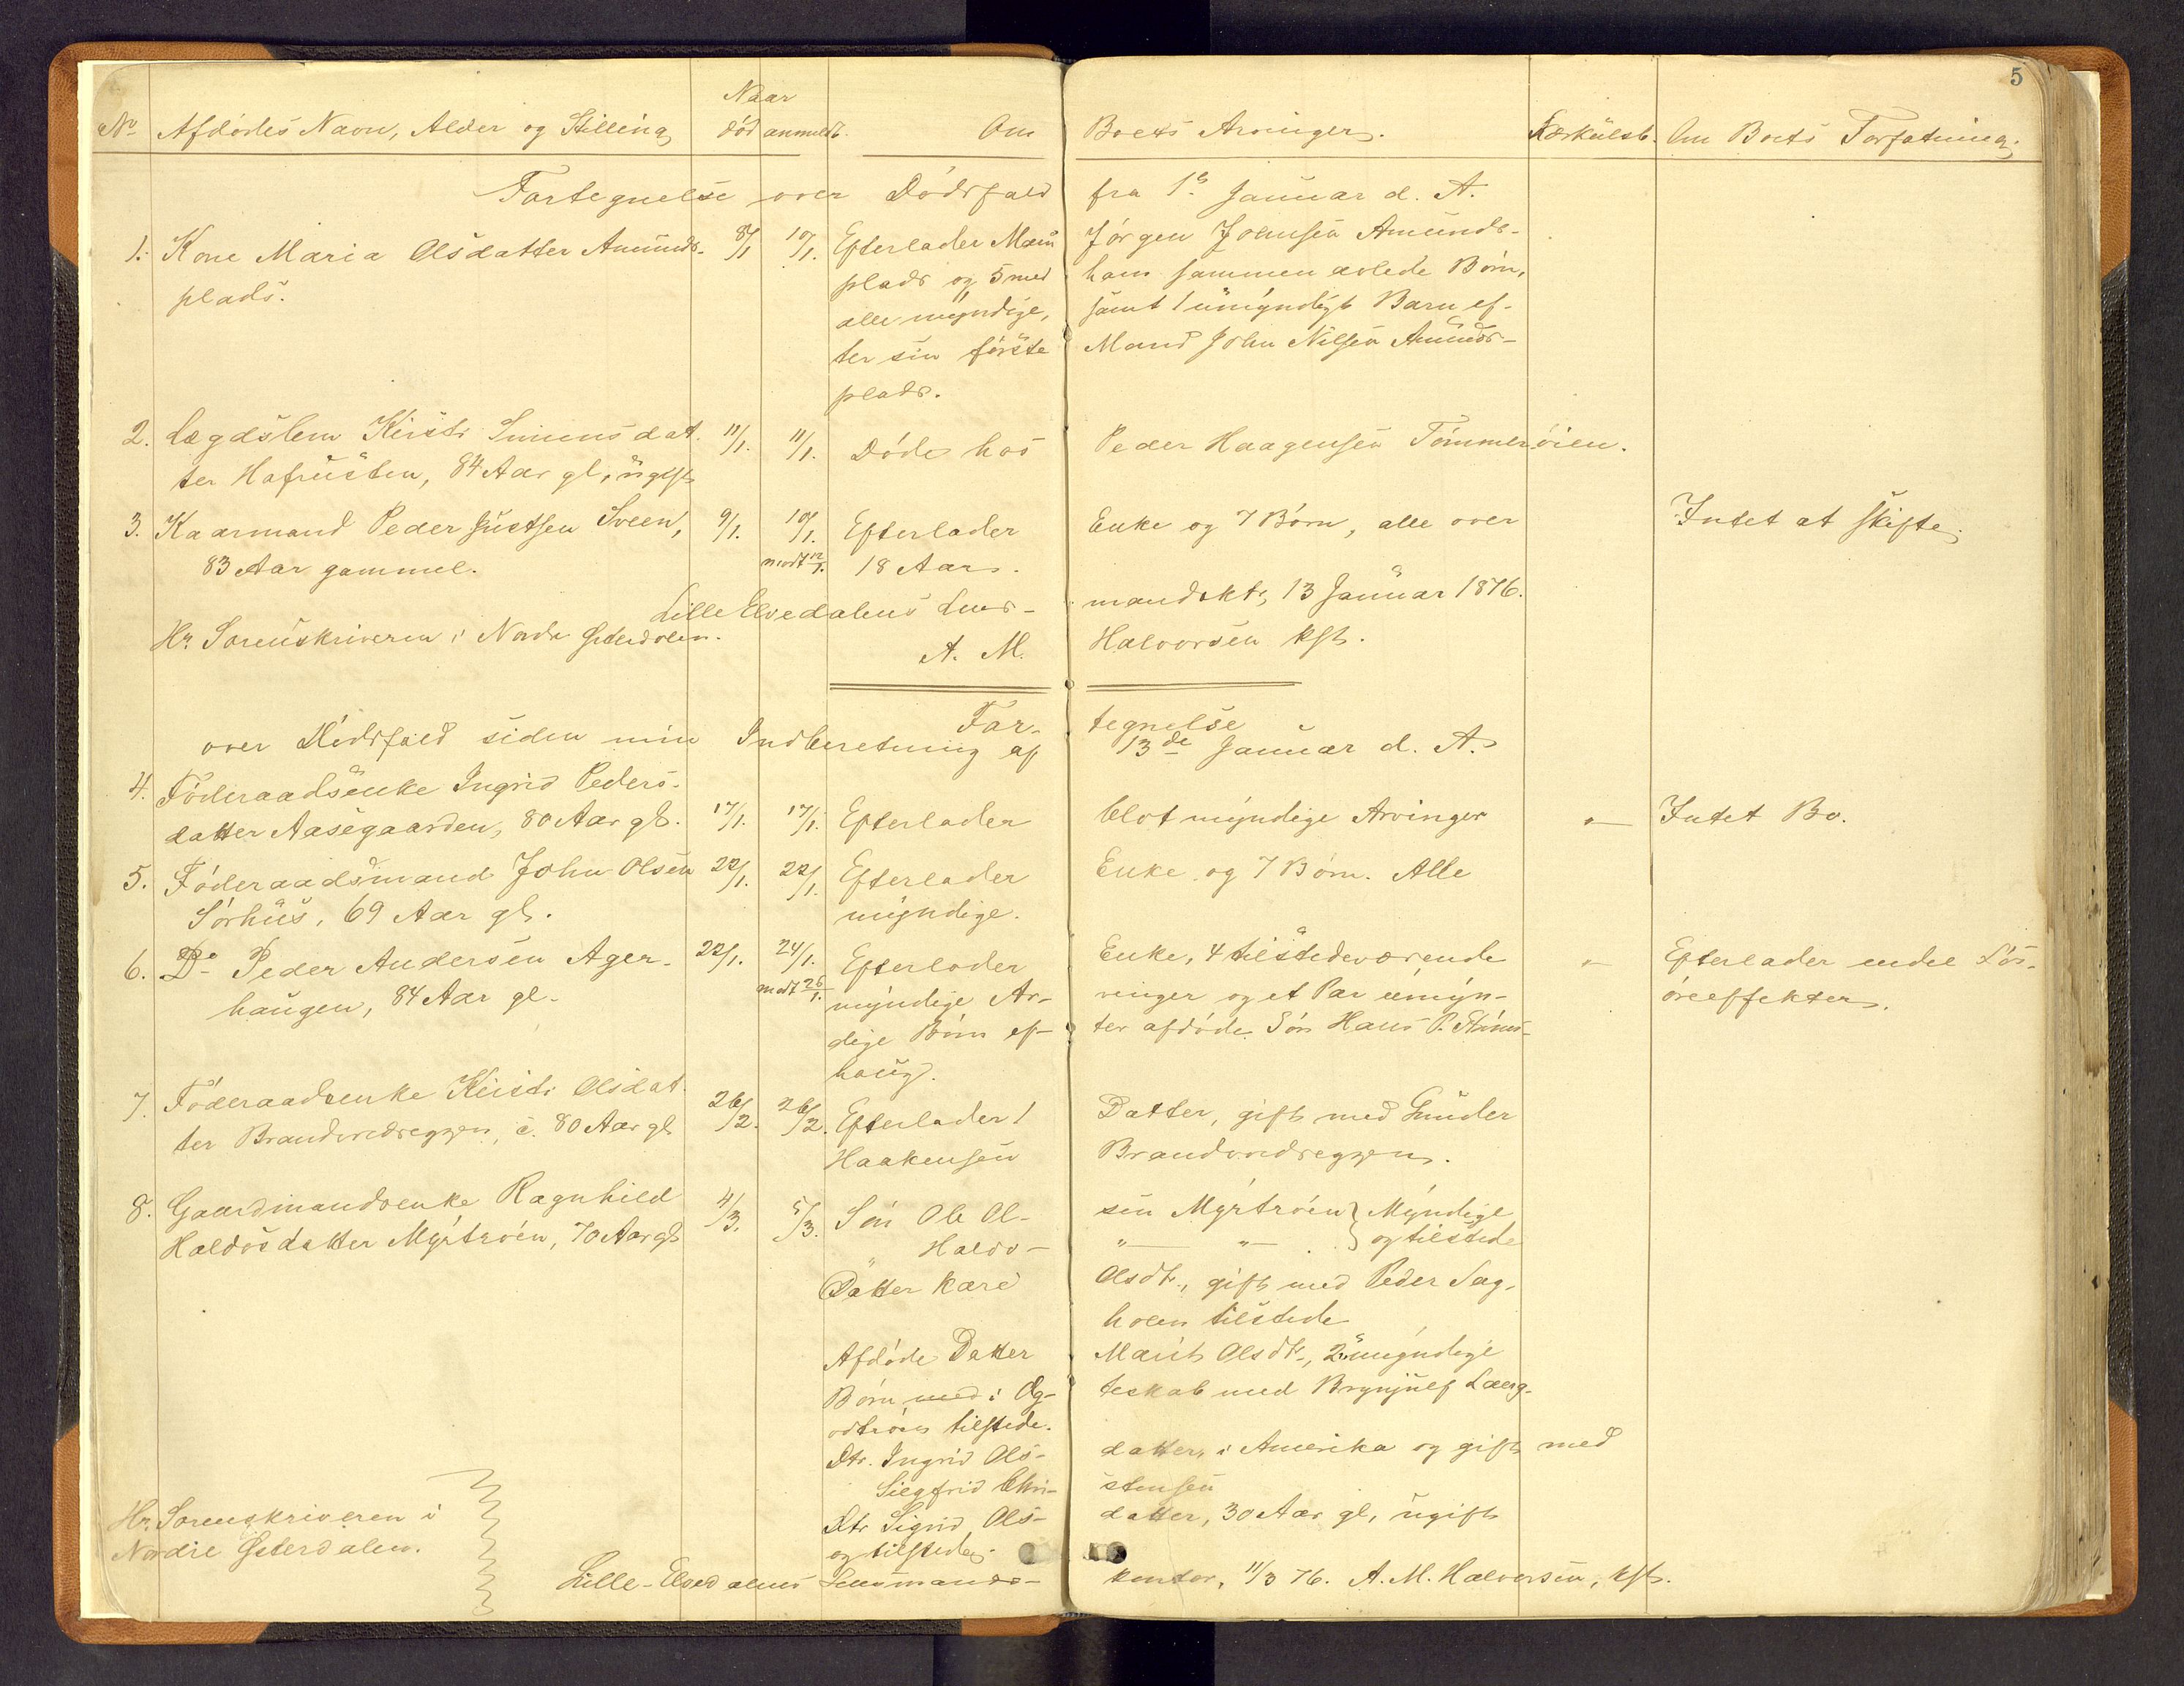 5
Naar
No Afdødes Navn, Alder og Stilling død anmeldt. Om Boets Arvinger. Særkuldb. Om Boets Forfatning.
Fortegnelse over Dødsfald fra 1ste Januar d. A.
1. Kone Maria Olsdatter Amunds- 8/1 10/1. Efterlader Mann Jørgen Johnsen Amunds-
plads. plads og 5 med ham sammen avlede Børn,
alle myndige, samt 1 umyndigt Barn ef-
ter sin første Mand John Nilsen Amunds-
plads.
2. Lægdslem Kirsti Simensdat- 11/1. 11/1. Døde hos Peder Haagensen Tømmerøien.
ter Hafrusten, 84 Aar gl, ugift
3. Kaarmand Peder Justsen Sveen, 9/1. 10/1. Efterlader Enke og 7 Børn, alle over Intet at skifte.
83 Aar gammel. modt 12/1. 18 Aar.
Lille Elvedalens Lens- mandskt, 13 Januar 1876.
Hr. Sorenskriveren i Nordr Østerdalen. A. M. Halvorsen kst.
For- tegnelse
over Dødsfald siden min Indberetning af 13de Januar d. A.
4. Føderaadsenke Ingrid Peders-
datter Aasegaarden, 80 Aar gl. 17/1. 17/1. Efterlader blot myndige Arvinger " Intet Bo.
5. Føderaadsmand John Olsen 22/1. 22/1. Efterlader Enke og 7 Børn. Alle
Sørhus, 69 Aar gl. myndige.
6. Do Peder Andersen Ager- 22/1. 24/1. Efterlader Enke, 4 tilstedeværende " Efterlader endel Løs-
haugen, 84 Aar gl. modt 26/1. myndige Ar- vinger og et Par umyn- øreeffekter.
dige Børn ef- ter afdøde Søn Hans P.
haug.
7. Føderaadsenke Kirsti Olsdat- 26/2. 26/2. Efterlader 1 Datter, gift med Gunder
ter Brandvordreggen, c. 80 Aar gl Haakensen Brandvordreggen.
8. Gaardmandsenke Ragnhild 4/3. 5/3. Søn Ole Ol- sen Myrtrøen } Myndige
Haldosdatter Myrtrøen, 70 Aar gl " Haldo- " " } og tilstede
Datter Kari Olsdt., gift med Peder Sag-
holen tilstede
Afdøde Datter Marit Olsdt., 2 umyndige
Børn med i Æg- teskab med Brynjulf Lang-
odtrøen tilstede.
Dtr. Ingrid Ols- datter, i Amerika og gift med
Siegfrid Chri- stensen
Dtr Sigrid Ols- datter, 30 Aar gl, ugift
og tilstede.
Hr. Sorenskriveren i
Nordre Østerdalen.
Lille-Elvedalens Lensmands- kontor, 11/3 76. A. M. Halvorsen, kst.